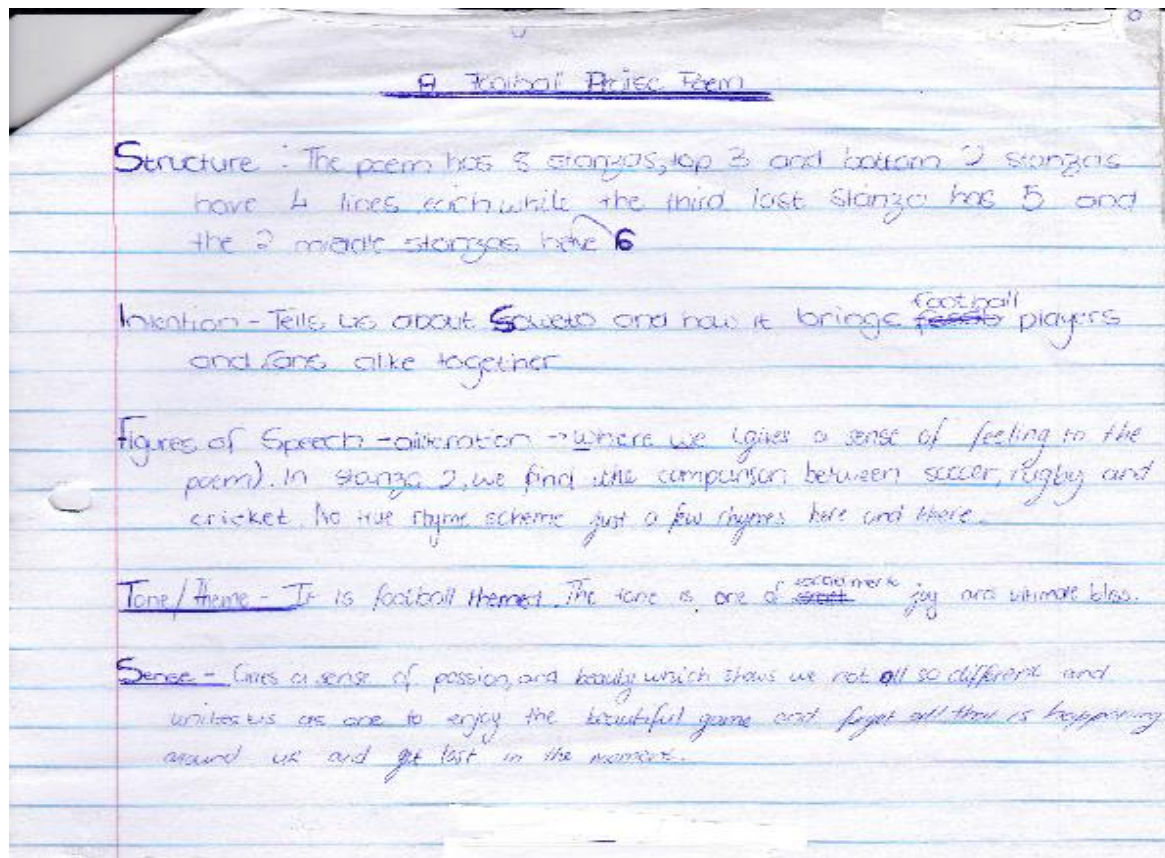 A Football Praise Poem
Structure : The poem has 8 stanzas, top 3 and bottom 2 stanzas
have 4 lines each while the third last stanza has 5 and
the 2 middle stanzas have 6
Intention - Tells us about Soweto and how it brings football players
and fans alike together
Figures of Speech - alliteration → where we (gives a sense of feeling to the
poem). In stanza 2, we find the comparison between soccer, rugby and
cricket. No true rhyme scheme just a few rhymes here and there.
Tone/Theme - It is football themed. The tone is one of joy and ultimate bliss.
Sense - Gives a sense of passion, and beauty which shows we not all so different and
unites us as one to enjoy the beautiful game and forget all that is happening
around us and get lost in the moment.